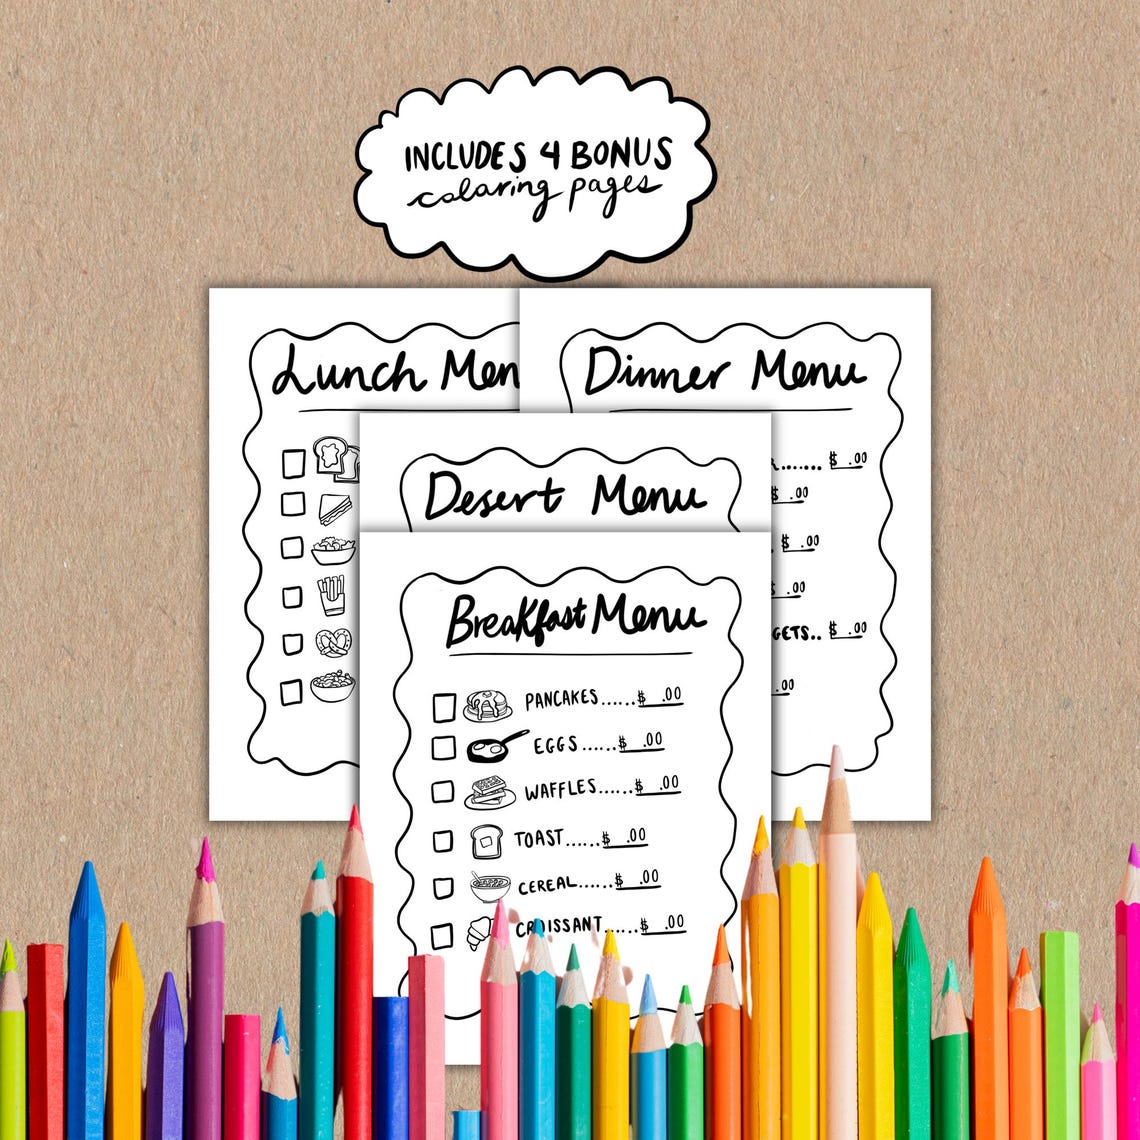 INCLUDES 4 BONUS
coloring pages
Lunch Men
Dinner Menu
$ .00
$ .00
$ .00
$ .00
GETS.. $ .00
.00
Desert Menu
Breakfast Menu
PANCAKES......$ .00
EGGS......$ .00
WAFFLES......$ .00
TOAST......$ .00
CEREAL......$ .00
CROISSANT......$ .00